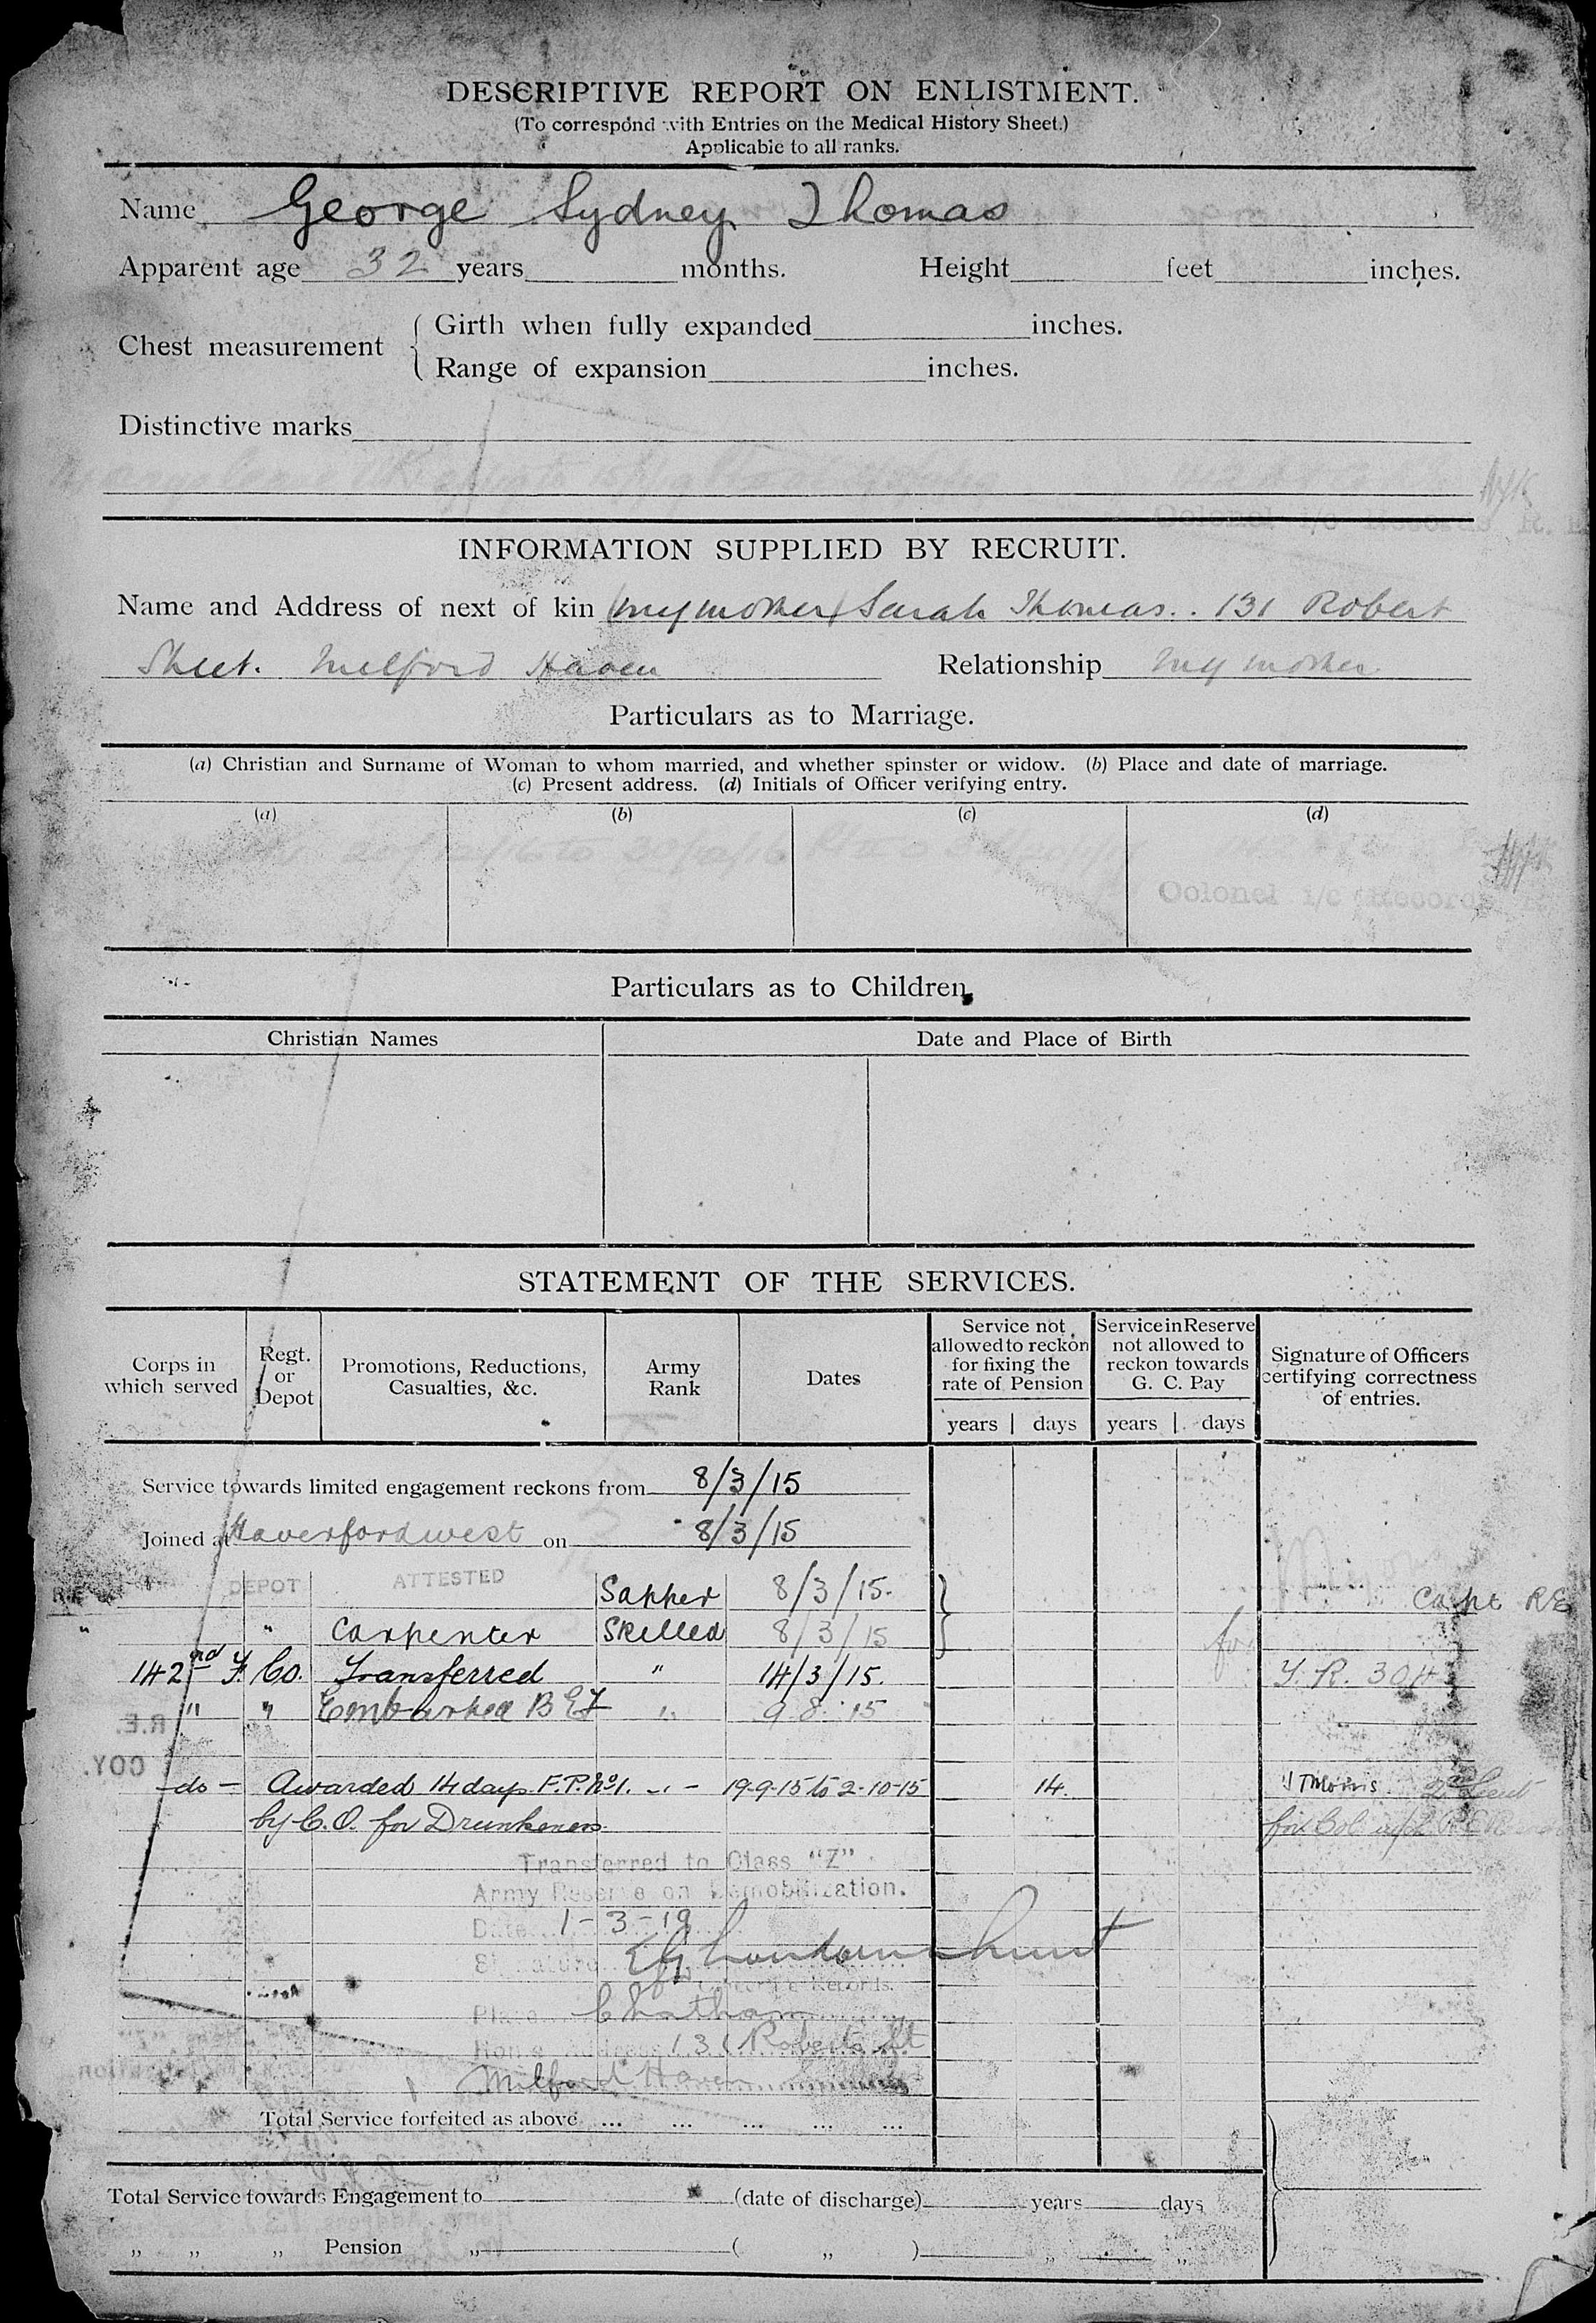 DESCRIPTIVE REPORT ON ENLISTMENT.
(To correspond with Entries on the Medical History Sheet.)
Applicable to all ranks.
Name George Sydney Thomas
Apparent age 32 years months. Height feet inches.
Chest measurement { Girth when fully expanded inches.
Range of expansion inches.
Distinctive marks
Colonel i/c Records R. E
INFORMATION SUPPLIED BY RECRUIT.
Name and Address of next of kin (my mother) Sarah Thomas. . 131 Robert
Street. Milford Haven Relationship my mother.
Particulars as to Marriage.
(a) Christian and Surname of Woman to whom married, and whether spinster or widow. (b) Place and date of marriage.
(c) Present address. (d) Initials of Officer verifying entry.
(a) (b) (c) (d)
20/12/16 to 30/12/16
Colonel i/c Records R
Particulars as to Children.
Christian Names Date and Place of Birth
STATEMENT OF THE SERVICES.
Corps in which served Regt. or Depot Promotions, Reductions, Casualties, &c. Army Rank Dates Service not allowed to reckon for fixing the rate of Pension Service in Reserve not allowed to reckon towards G. C. Pay Signature of Officers certifying correctness of entries.
years days years days
Service towards limited engagement reckons from 8/3/15
Joined at Haverfordwest on 8/3/15
R.E. DEPOT ATTESTED Sapper 8/3/15. Capt RE
" " Carpenter Skilled 8/3/15 for
142nd F. Co. Transferred " 14/3/15. T. R. 304
" " Embarked B E F " 9 8 15
R.E.
COY.
-do- Awarded 14 days F.P. No1. -"- 19-9-15 to 2-10-15 14. Morris 2nd Lieut
by C.O. for Drunkeness. for Col i/c R E R
Transferred to Class "Z"
Army Reserve on Demobilization.
Date 1-3-19
Signature
i/c Records.
Place Chatham
Home Address 131 Roberts St
Milford Haven
Total Service forfeited as above ... ... ... ... ...
Total Service towards Engagement to (date of discharge) years days
" " " Pension " ( " ) " "